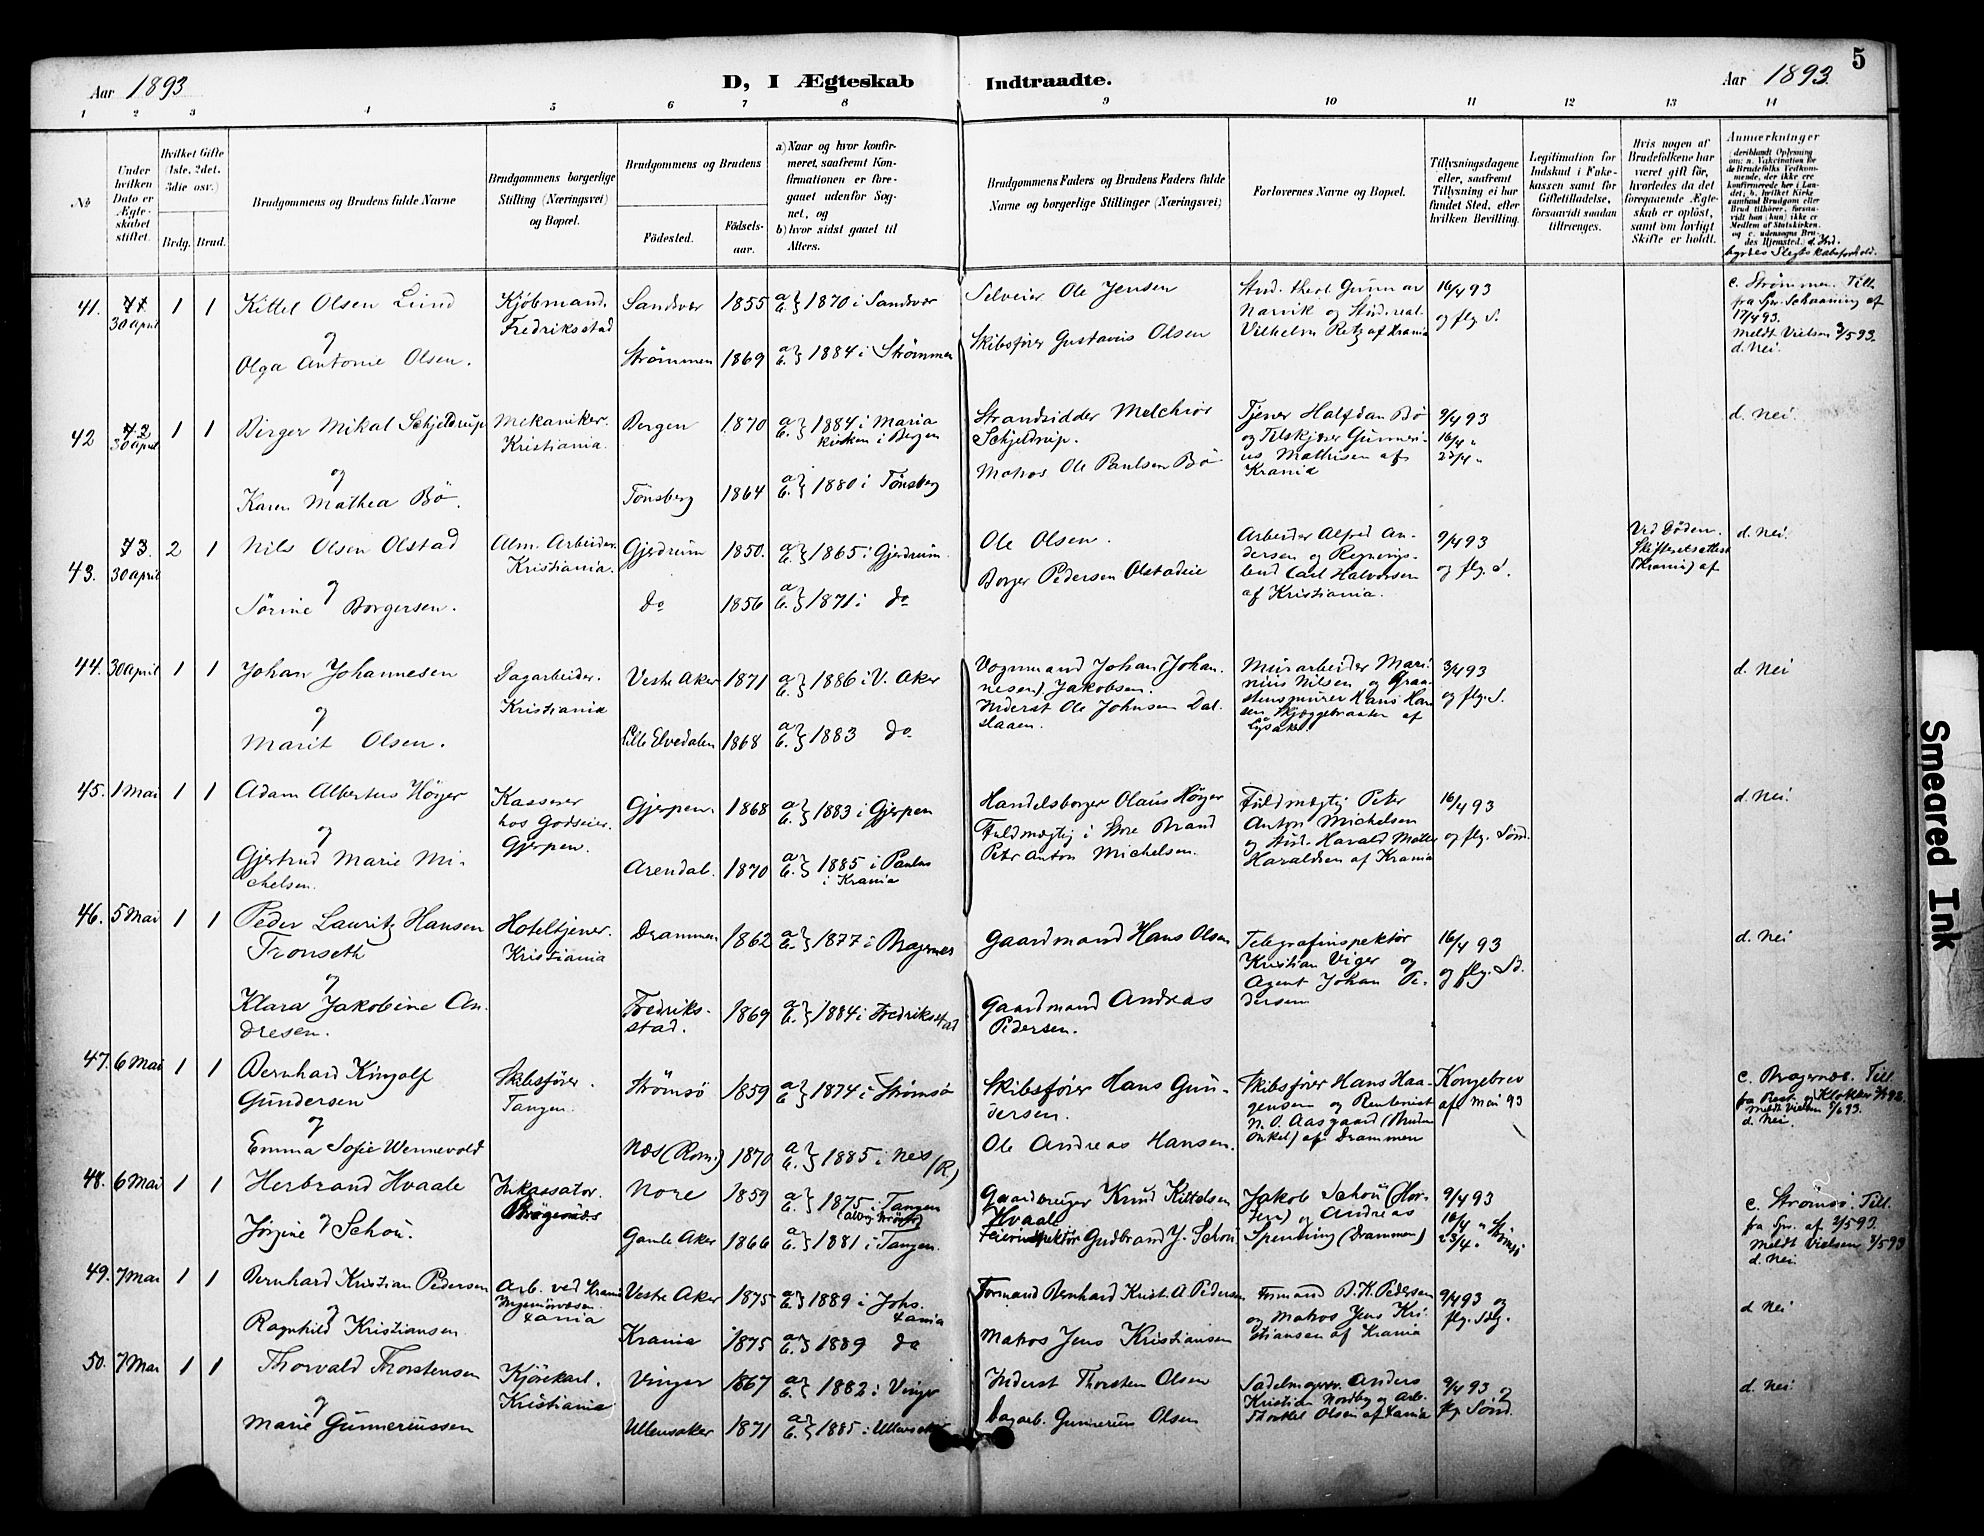 5
Aar 1893
D, I Ægteskab Indtraadte.
Aar 1893.
1 2 3 4 5 6 7 8 9 10 11 12 13 14
No
Under hvilken Dato er Ægteskabet stiftet.
Hvilket Gifte (1ste, 2det, 3die osv.)
Brdg. Brud.
Brudgommens og Brudens fulde Navne
Brudgommens borgerlige Stilling (Næringsvei) og Bopæl.
Brudgommens og Brudens
Fødested.
Fødselsaar.
a) Naar og hvor konfirmeret, saafremt Konfirmationen er foregaaet udenfor Sognet, og
b) hvor sidst gaaet til Alters.
Brudgommens Faders og Brudens Faders fulde Navne og borgerlige Stillinger (Næringsvei)
Forlovernes Navne og Bopæl.
Tillysningsdagene eller, saafremt Tillysning ei har fundet Sted, efter hvilken Bevilling.
Legitimation for Indskud i Enkekassen samt for Giftetilladelse, forsaavidt saadan tiltrænges.
Hvis nogen af Brudefolkene har været gift før, hvorledes da det foregaaende Ægteskab er opløst, samt om lovligt Skifte er holdt.
Anmærkninger
41. 30 April 1 1 Kittel Olsen Lund
Kjøbmand. Fredriksstad
Sandvær 1855 a b } 1870 i Sandvær
og
Olga Antonie Olsen.
Strømmen 1869 a b } 1884 i Strømmen
Selveier Ole Jensen
Skibsfører Gustavus Olsen
Stud. theol Gunnar
Narvik og Stud. real.
Vilhelm Retz af Krania
16/4 93
og flg. S.
c. Strømmen. Till.
fra Spr. Schaaning af
17/4 93.
Meldt Vielsen 3/5 93.
d. Nei.
42 30 April 1 1 Birger Mikal Schjeldrup
Mekaniker. Kristiania.
Bergen 1870 a b } 1884 i Maria
kirken i Bergen
og
Karen Mathea Bö.
Tönsberg 1864 a b } 1880 i Tönsberg
Strandsidder Melchior
Schjeldrup.
Matros Ole Paulsen Bö
Tjener Halfdan Bö
og Tilskjærer Gunnerius Mathisen af
Krania
9/4 93
16/4 "
23/4 "
d. Nei.
43. 73. 30 April 2 1 Nils Olsen Olstad
Alm. Arbeider. Kristiania.
Gjerdrum 1850. a b } 1865 i Gjerdrum.
og
Sörine Borgersen.
do 1856 a b } 1871 i do
Ole Olsen.
Borger Pedersen Olstadeie
Arbeider Alfred Andersen og Regningsbud Carl Halvorsen
af Kristiania.
9/4 93
og flg. S.
Ved Döden.
Skifteretsattest
(Krania) af
d. Nei.
44. 30 April 1 1 Johan Johannesen
Dagarbeider. Kristiania
Vestre Aker 1871 a b } 1886 i V. Aker
og
Marit Olsen.
Lille Elvedalen 1868 a b } 1883 do
Vognmand Johan (Johannesen) Jakobsen.
Inderst Ole Johnsen Dalslaaen.
Murarbeider Marinius Nilsen og Graastensmurer Hans Hansen Skjæggebraaten af
Lysaker.
3/4 93
og flg. S.
d. Nei
45. 1 Mai 1 1 Adam Albertus Höyer
Kasserer
hos Godseier.
Gjerpen.
Gjerpen. 1868 a b } 1883 i Gjerpen
og
Gjertrud Marie Michelsen.
Arendal. 1870 a b } 1885 i Paulus
i Krania
Handelsborger Olaus Höyer
Fuldmægtig i Store Brand
Peter Anton Michelsen.
Fuldmægtig Peter
Anton Michelsen
og Stud. Harald
Haraldsen af Krania
16/4 93
og flg. Sønd.
d. Nei.
46. 5 Mai 1 1 Peder Lauritz Hansen
Tronseth
Hoteltjener. Kristiania
Drammen 1862 a b } 1877 i Bragernes
og
Klara Jakobine Andresen.
Fredriksstad. 1869 a b } 1884 i Fredriksstad
Gaardmand Hans Olsen
Gaardmand Andreas
Pedersen.
Telegrafinspektör
Kristian Viger og
Agent Johan Pedersen
16/4 93
og flg. Sö.
d. Nei
47. 6 Mai 1 1 Bernhard Kingolf
Gundersen
Skibsfører. Tangen.
Strømsö 1859 a b } 1874 i Strømsö
og
Emma Sofie Wennevold
Næs (Rom.) 1870 a b } 1885 i Nes (R.)
Skibsfører Hans Gundersen.
Ole Andreas Hansen.
Skibsfører Hans Haagensen og Rentenist
N. O. Aasgaard (Brudens
Onkel) af Drammen
Kongebrev
af Mai 93
c. Bragernæs. Till.
Meldt Vielsen
d. Nei.
48. 6 Mai 1 1 Herbrand Hvaale
Inkassator. Bragernæs
Nore 1859 a b } 1875 i Tangen
og
Jörgine Schou.
Gamle Aker 1866 a b } 1881 i Tangen.
Gaardbruger Knud Kittelsen
Hvaale
Feierinspektör Gudbrand J. Schou
Jakob Schou (Horten) og Andreas
Spending (Drammen)
9/4 93
16/4 "
23/4 " Strömsö
c. Strömsö. Till.
fra Spr. af 2/5 93.
Meldt Vielsen 7/5 93
d. Nei
49. 7 Mai 1 1 Bernhard Kristian Pedersen
Arb. ved Krania
Ingeniörvæsen.
Xania
Vestre Aker 1875 a b } 1889 i Johs.
Xania
og
Ragnhild Kristiansen
Krania 1875 a b } 1889 do
Formand Bernhard Krist. A Pedersen
Matros Jens Kristiansen
Formand B. K. Pedersen
og Matros Jens Kristiansen af Krania
9/4 93 og
flg. Sdg.
d. Nei
50. 7 Mai 1 1 Thorvald Thorstensen
Kjörekarl. Kristiania
Vinger 1867 a b } 1882 i Vinger
og
Marie Gunneriussen
Ullensaker 1871 a b } 1885 i Ullensaker
Inderst Thorsten Olsen
Dagarb. Gunnerius Olsen
Sadelmager. Anders
Kristian Nordby og Arb.
Thorkel Olsen af Xania
9/4 93 og
flg. Sönd.
d. Nei.
Smeared Ink